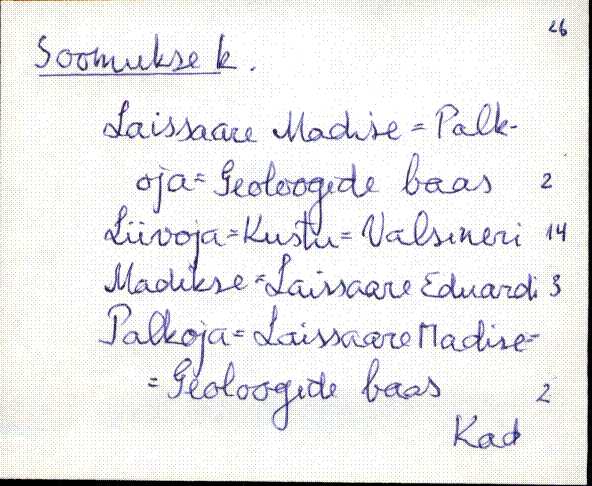 26
Soomukse k.
Laissaare Madise = Palk-
oja = Geoloogide baas 2
Liivoja = Kustu = Valsineri 14
Madikse = Laissaare Eduardi 3
Palkoja = Laissaare Madise =
= Geoloogide baas 2
Kad